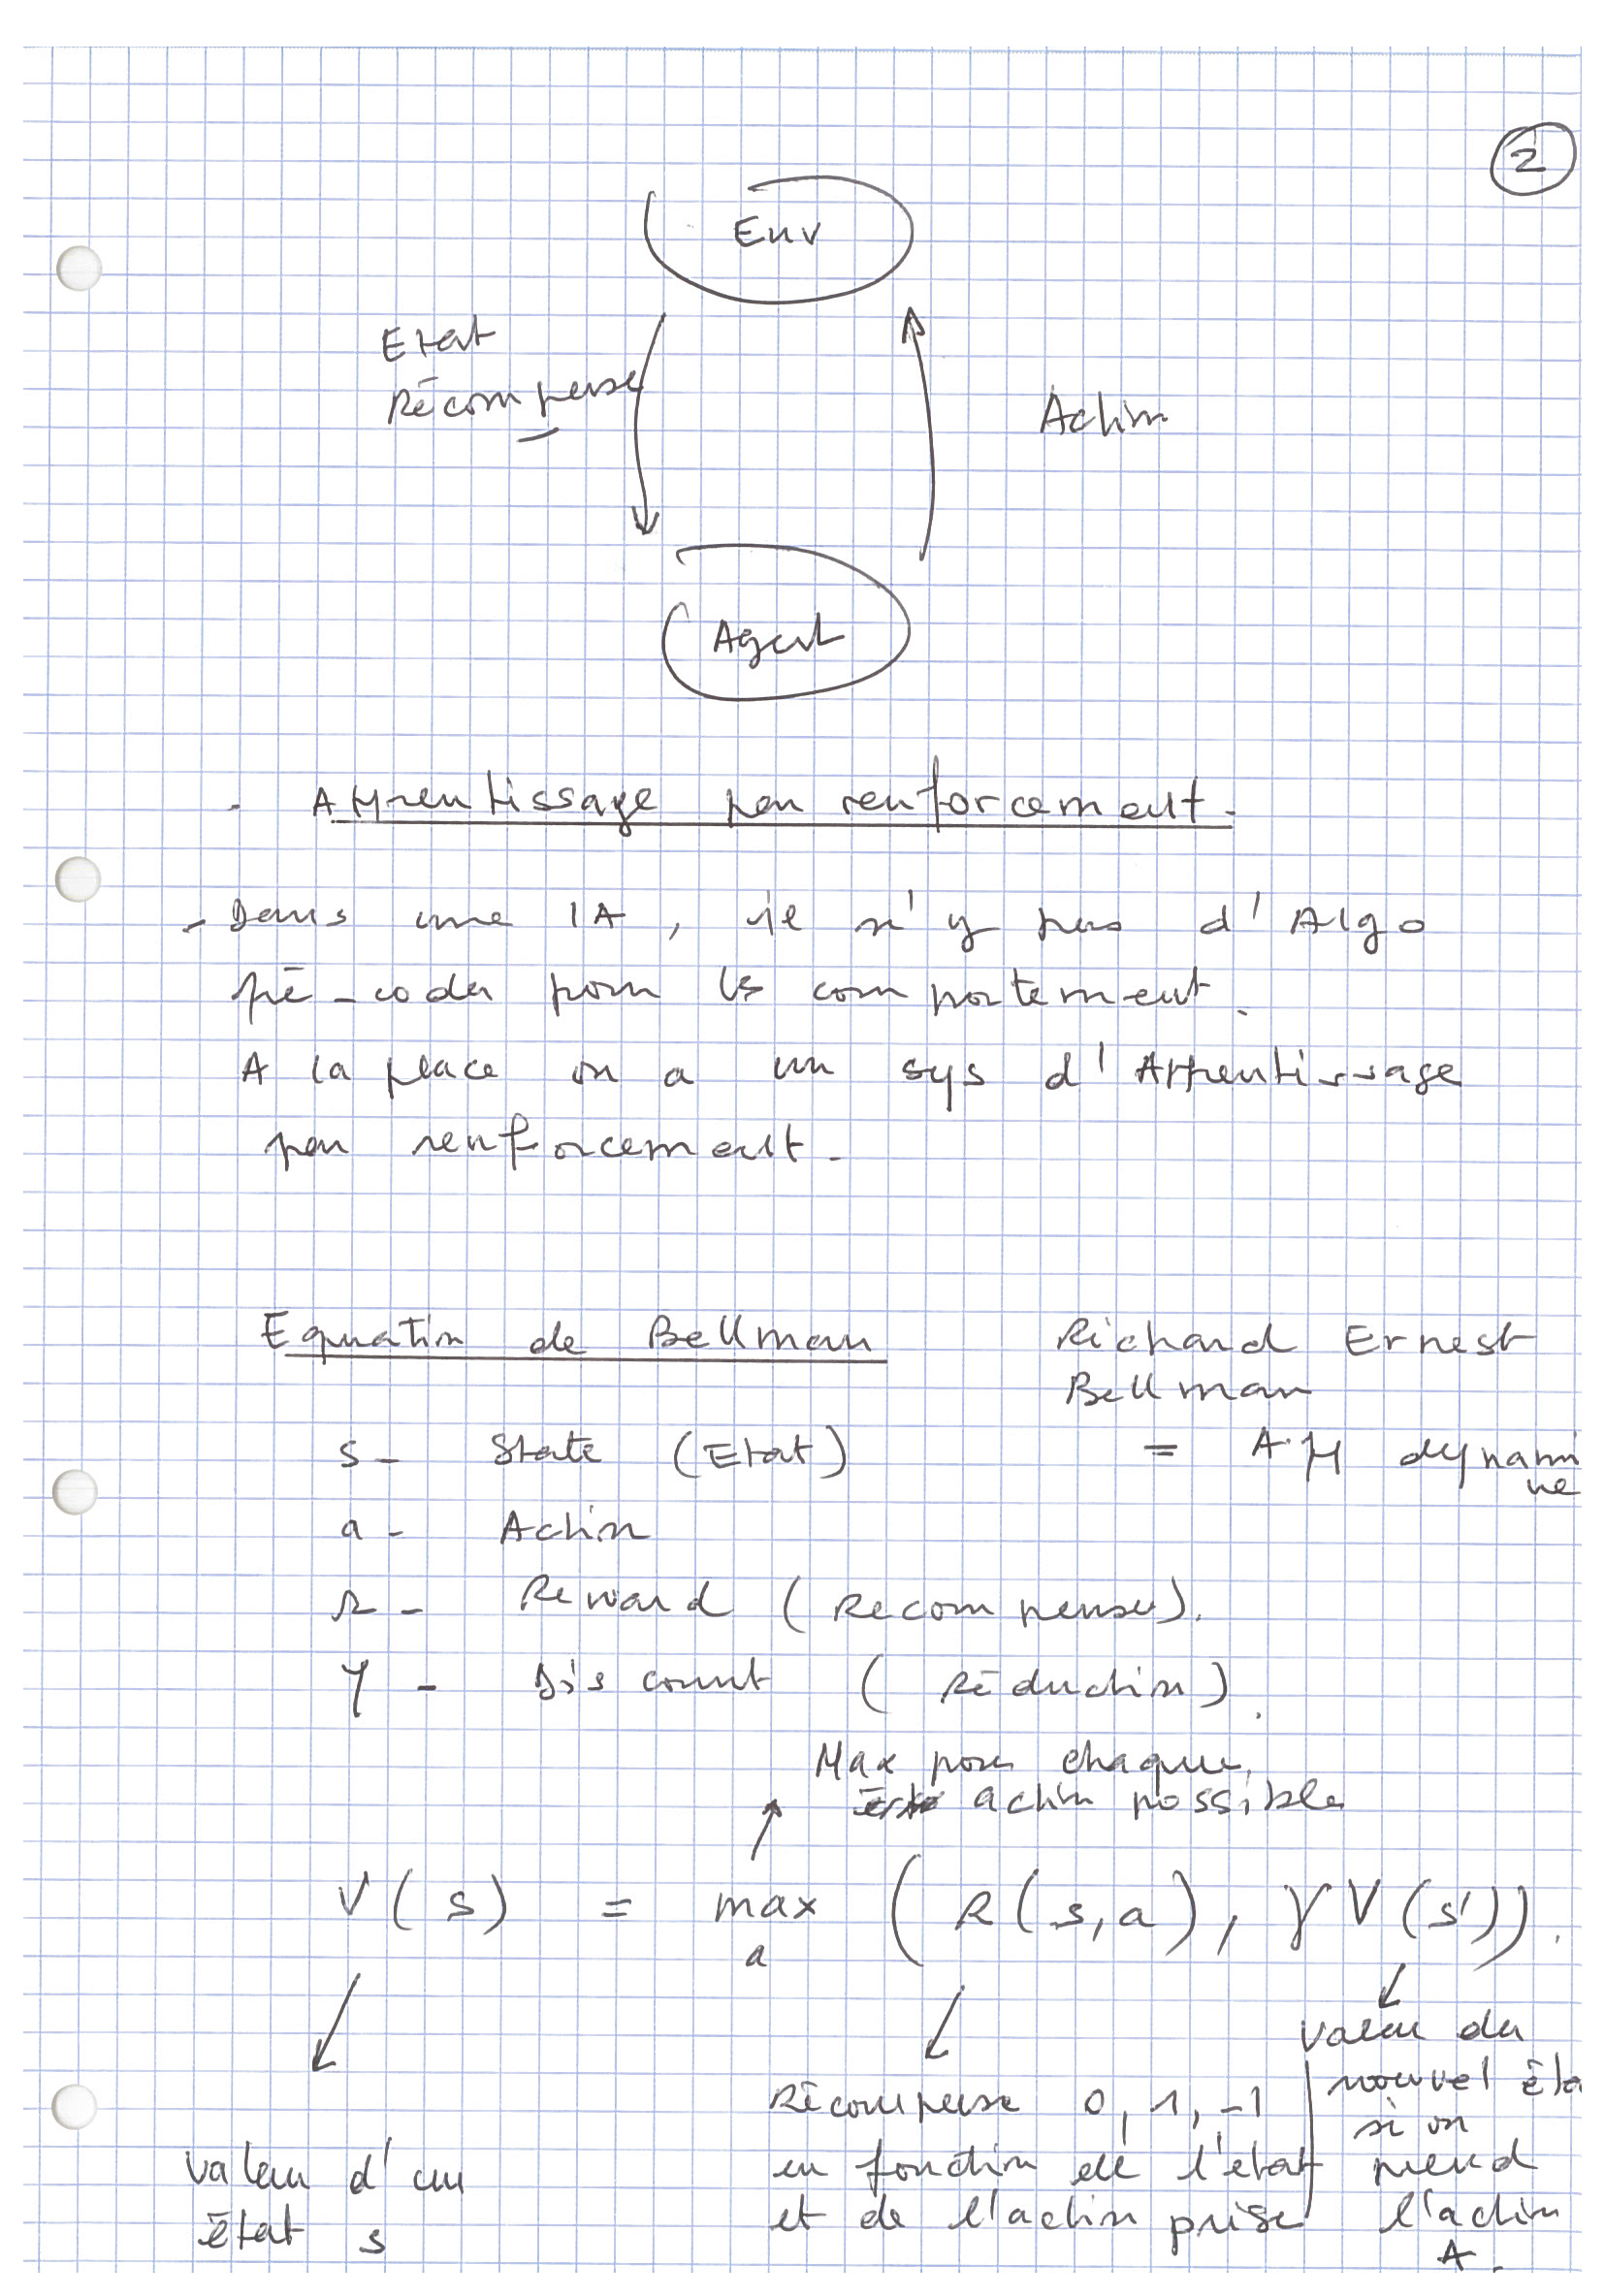 2
Env
Etat
Récompense
Action
Agent
- Apprentissage par renforcement.
- Dans une IA, il n'y pas d'Algo
pré-coder pour les comportement.
A la place on a un sys d'Apprentissage
par renforcement.
Equation de Bellman
Richard Ernest
Bellman
s - State (Etat)
= APP dynami
a - Action
r - Reward (Recompense).
γ - Discount (Réduction).
Max pour chaque
action possible
V(s) = max (R(s,a), γV(s')).
a
valeur d'un
état s
Récompense 0, 1, -1
en fonction de l'état
et de l'action prise
valeur du
nouvel éta
si on
prend
l'action
A.